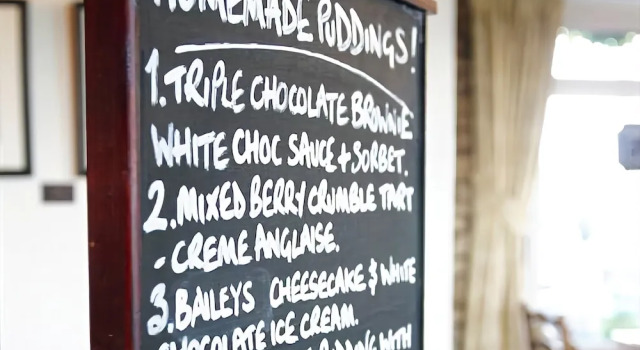 HOMEMADE PUDDINGS!
1. TRIPLE CHOCOLATE BROWNIE
WHITE CHOC SAUCE + SORBET.
2. MIXED BERRY CRUMBLE TART
- CREME ANGLAISE.
3. BAILEYS CHEESECAKE & WHITE
CHOCOLATE ICE CREAM.
WITH